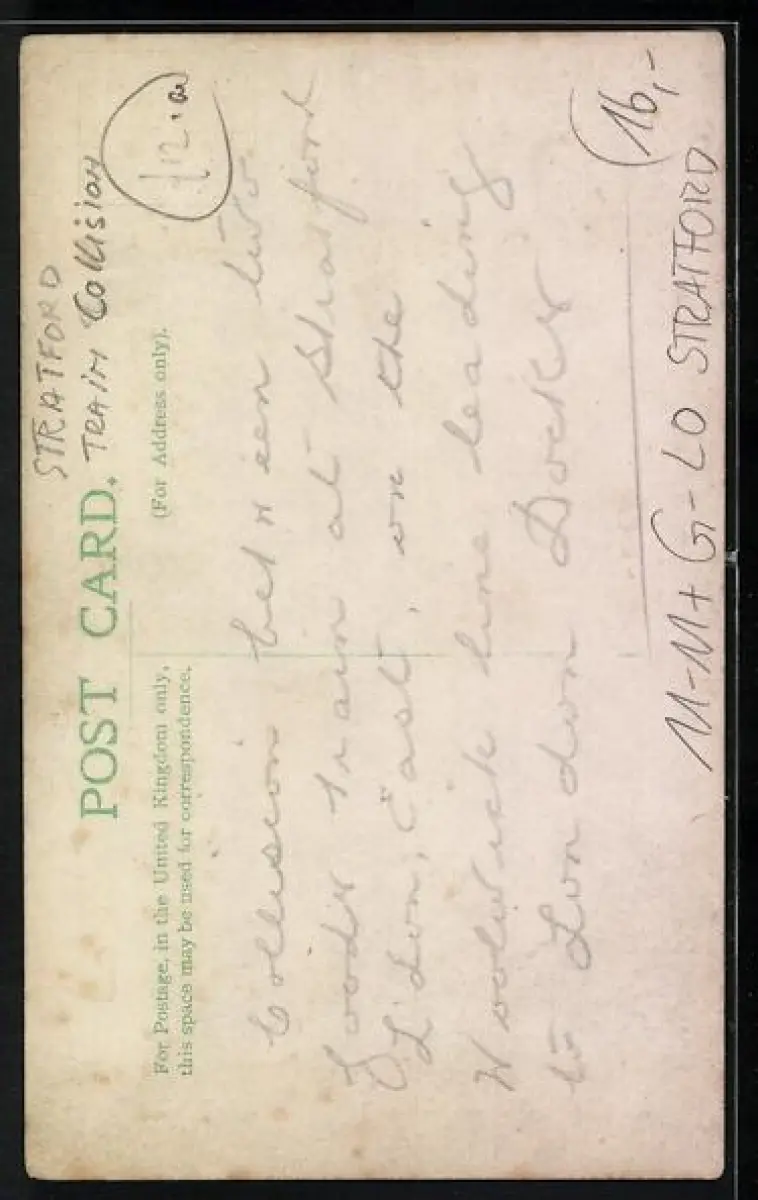 STRATFORD
POST CARD. TRAIN Collision
£12.00
For Postage, in the United Kingdom only, (For Address only).
this space may be used for correspondence.
Collision between two
Goods train at Stratford
L'don, East, on the
Woolwich line leading
to London Docks
16,-
M-M+G-LO STRATFORD